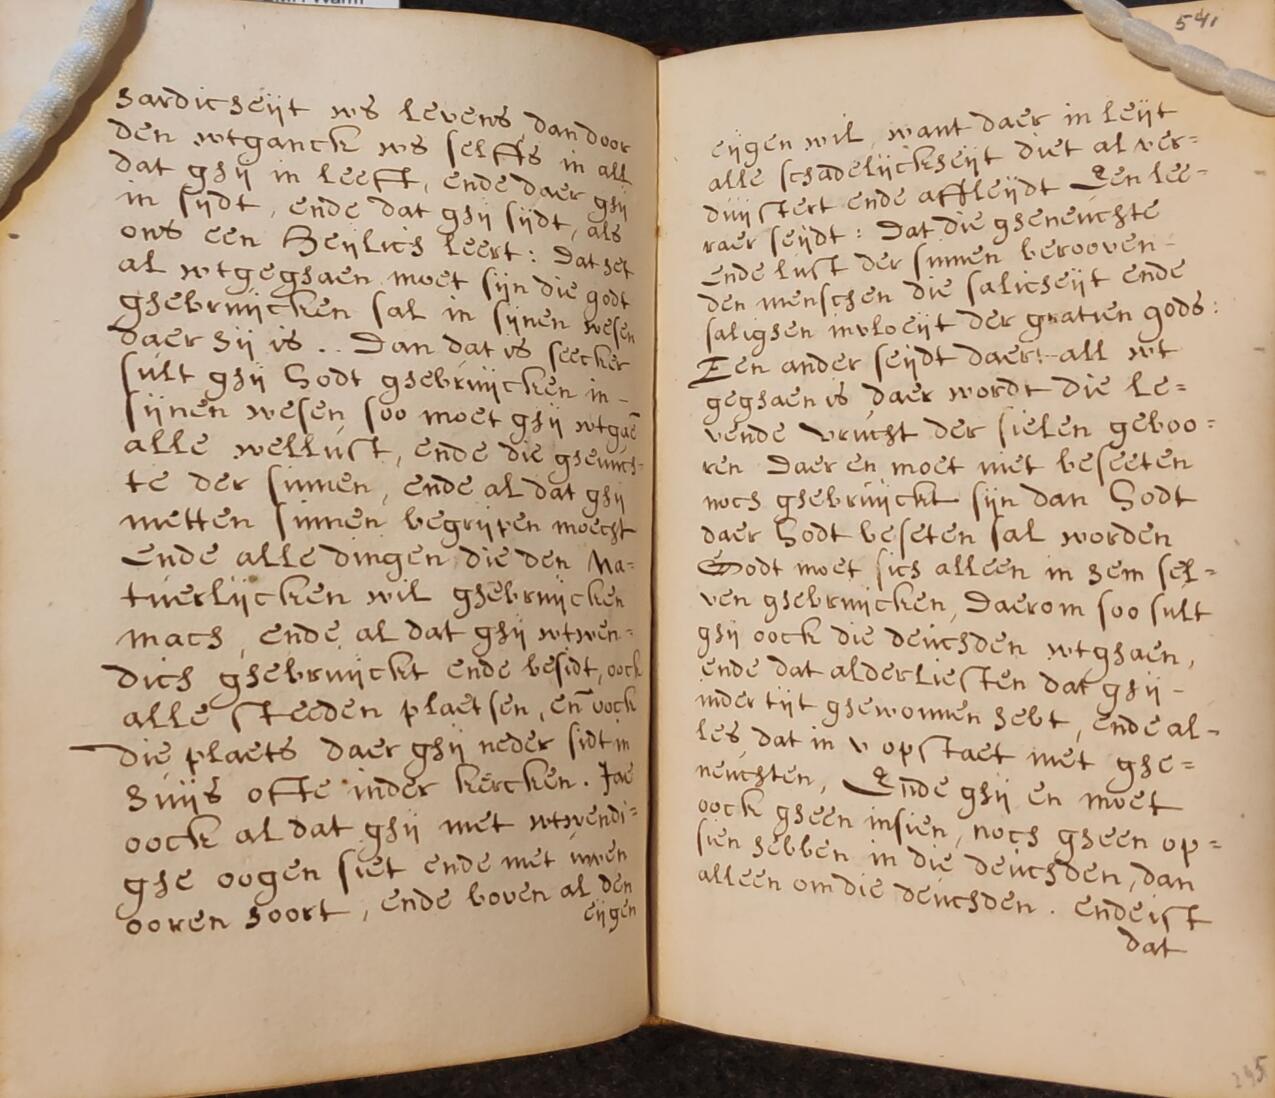 hardicheijt ws levens, dan door
den wtganck ws selffs in all
dat ghij in leeft, ende daer ghij
in sijdt, ende dat ghij sijdt, als
ons een Heijlich leert: Dat het
al wtgeghaen moet sijn die godt
ghebruijcken sal in sijnen wesen
daer hij is.. Dan dat is seecker
sult ghij Godt ghebruijcken in-
sijnen wesen soo moet ghij wtgaē
alle wellust, ende die gheuich-
te der sinnen, ende al dat ghij
metten sinnen begrijpen moecht
ende alle dingen die den Na=
tuerlijcken wil ghebruijcken
mach, ende al dat ghij wtwen=
dich ghebruijckt ende besidt, oock
alle steeden plaetsen, en̄ oock
die plaets daer ghij neder sidt in
huijs ofte inder kercken. Jae
oock al dat ghij met wtwendi=
ghe oogen siet ende met uwen
ooren hoort, ende boven al den
eijgen
541
eijgen wil, want daer in leijt
alle schadelijckheijt diet al ver=
duijstert ende affleijdt Een lee=
raer seijdt: Dat die gheneuchte
ende lust der sinnen berooven-
den menschen die salicheijt ende
salighen invloeijt der gratien gods:
Een ander seijdt daer all wt
geghaen is daer wordt die le=
vende vrucht der sielen geboo=
ren Daer en moet niet beseeten
noch ghebruijckt sijn dan Godt
daer Godt beseten sal worden
Godt moet sich alleen in hem sel=
ven ghebruijcken, Daerom soo sult
ghij oock die deuchden wtghaen,
ende dat alderliesten dat ghij-
inder tijt ghewonnen hebt, ende al-
les dat in v opstaet met ghe=
neuchten, Ende ghij en moet
oock gheen insien, noch gheen op=
sien hebben in die deuchden, dan
alleen om die deuchden. ende ist
dat